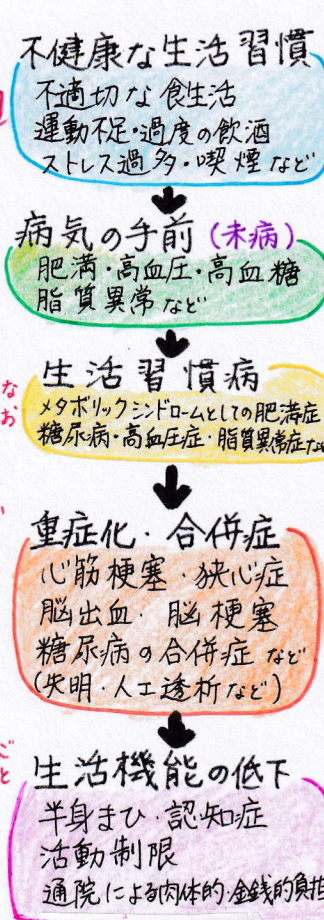 不健康な生活習慣
不適切な食生活
運動不足・過度の飲酒
ストレス過多・喫煙など
病気の手前(未病)
肥満・高血圧・高血糖
脂質異常など
生活習慣病
なお
メタボリックシンドロームとしての肥満症
糖尿病・高血圧症・脂質異常症な
重症化・合併症
心筋梗塞・狭心症
脳出血・脳梗塞
糖尿病の合併症など
(失明・人工透析など)
ごと
生活機能の低下
半身まひ・認知症
活動制限
通院による肉体的・金銭的負担